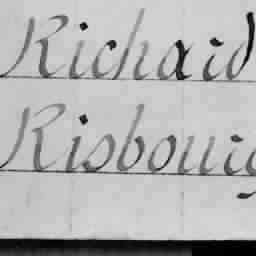 Richard
Risbourg